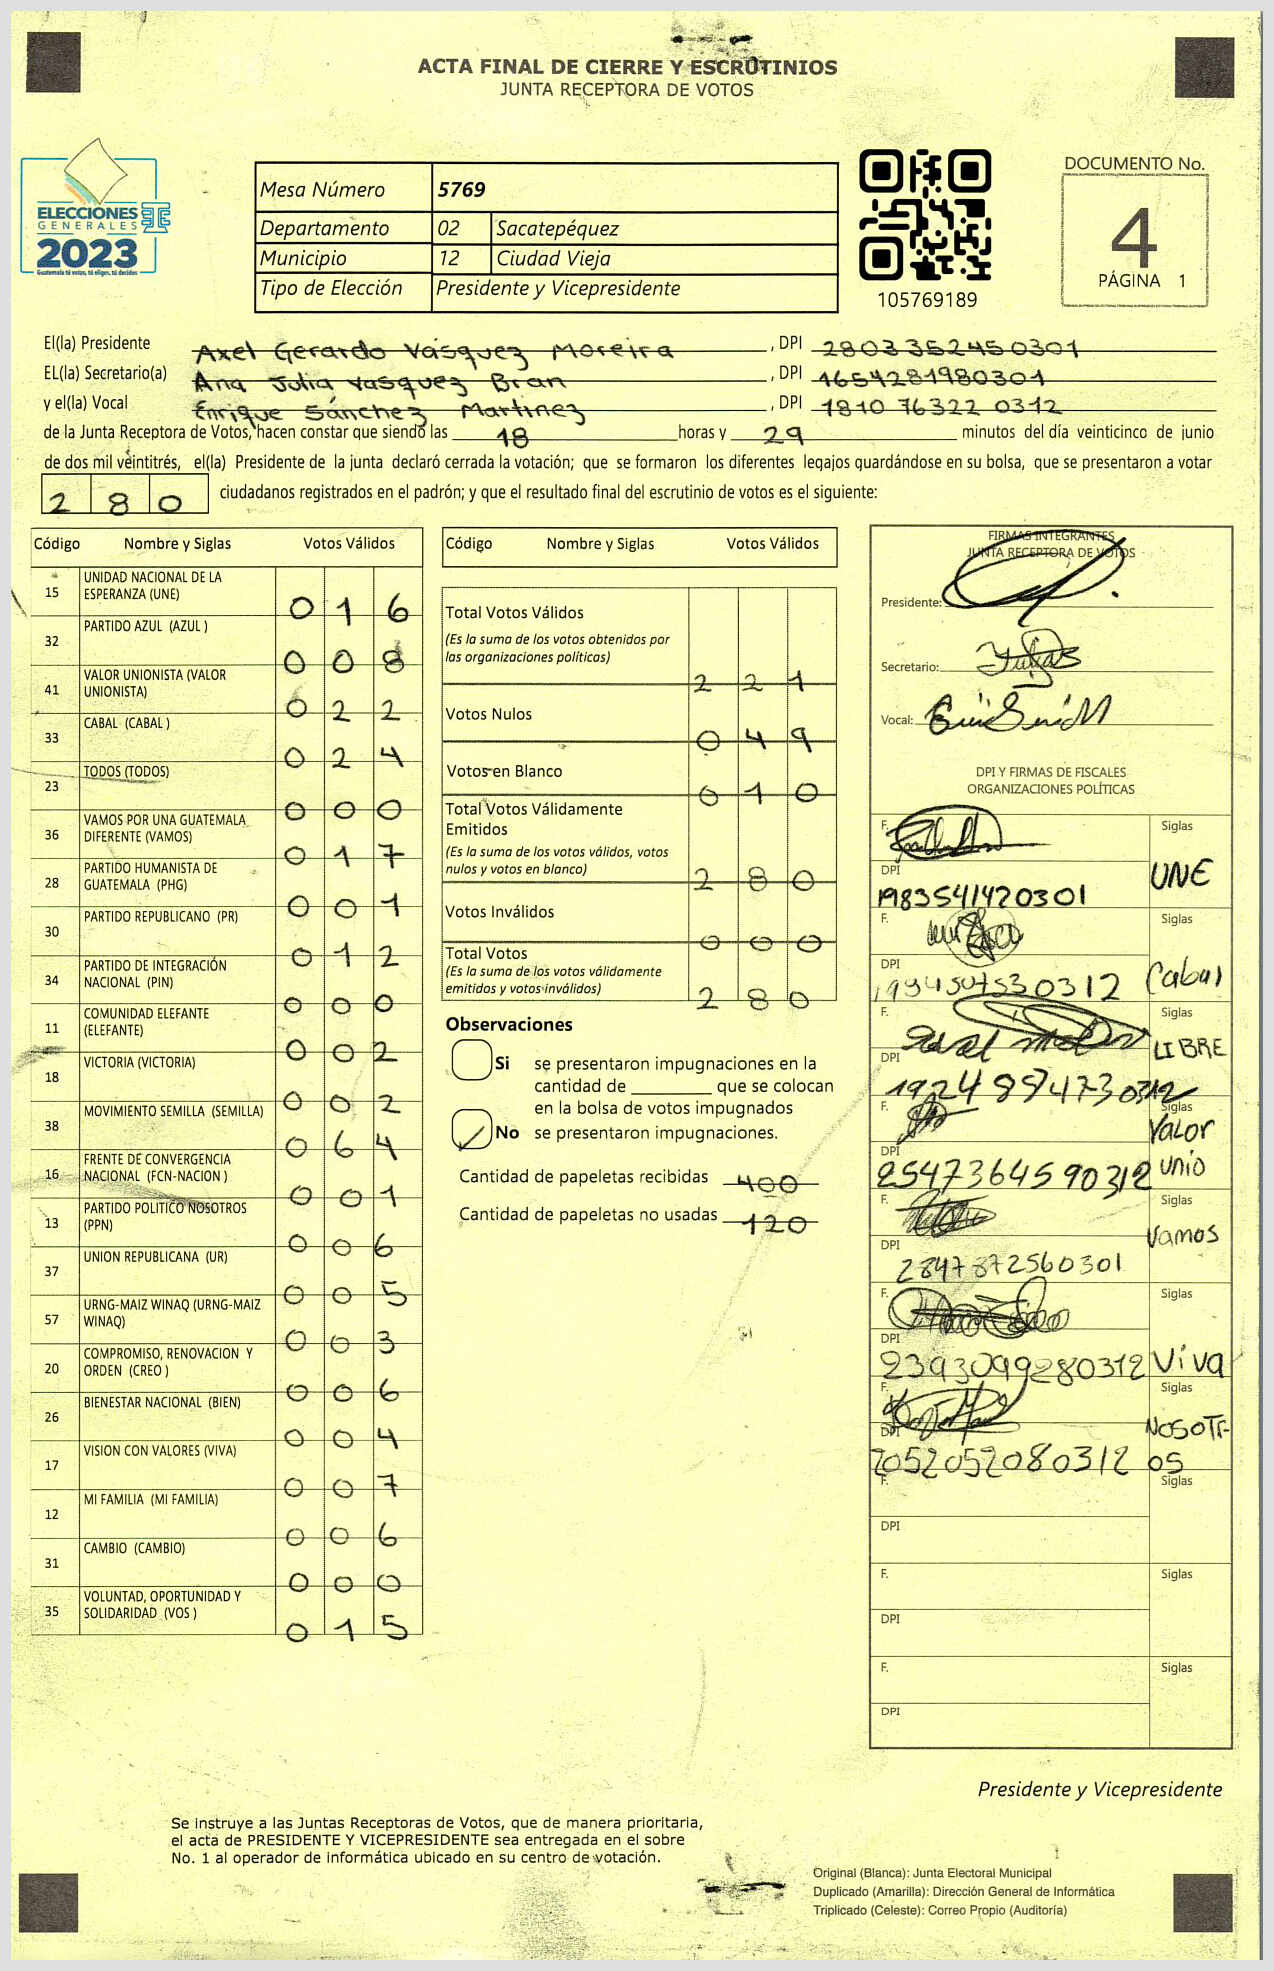 ACTA FINAL DE CIERRE Y ESCRUTINIOS
JUNTA RECEPTORA DE VOTOS
ELECCIONES
GENERALES
2023
Guatemala tú votas, tú eliges, tú decides
Mesa Número 5769
Departamento 02 Sacatepéquez
Municipio 12 Ciudad Vieja
Tipo de Elección Presidente y Vicepresidente
105769189
DOCUMENTO No.
4
PÁGINA 1
El(la) Presidente Axel Gerardo Vásquez Moreira, DPI 2803352450301
EL(la) Secretario(a) Ana Julia Vasquez Bran, DPI 1654281980301
y el(la) Vocal Enrique Sánchez Martinez, DPI 1810 76322 0312
de la Junta Receptora de Votos, hacen constar que siendo las 18 horas y 29 minutos del día veinticinco de junio
de dos mil veintitrés, el(la) Presidente de la junta declaró cerrada la votación; que se formaron los diferentes legajos guardándose en su bolsa, que se presentaron a votar
280 ciudadanos registrados en el padrón; y que el resultado final del escrutinio de votos es el siguiente:
Código Nombre y Siglas Votos Válidos
15 UNIDAD NACIONAL DE LA ESPERANZA (UNE) 016
32 PARTIDO AZUL (AZUL ) 008
41 VALOR UNIONISTA (VALOR UNIONISTA) 022
33 CABAL (CABAL ) 024
23 TODOS (TODOS) 000
36 VAMOS POR UNA GUATEMALA DIFERENTE (VAMOS) 017
28 PARTIDO HUMANISTA DE GUATEMALA (PHG) 001
30 PARTIDO REPUBLICANO (PR) 012
34 PARTIDO DE INTEGRACIÓN NACIONAL (PIN) 000
11 COMUNIDAD ELEFANTE (ELEFANTE) 002
18 VICTORIA (VICTORIA) 002
38 MOVIMIENTO SEMILLA (SEMILLA) 064
16 FRENTE DE CONVERGENCIA NACIONAL (FCN-NACION ) 001
13 PARTIDO POLITICO NOSOTROS (PPN) 006
37 UNION REPUBLICANA (UR) 005
57 URNG-MAIZ WINAQ (URNG-MAIZ WINAQ) 003
20 COMPROMISO, RENOVACION Y ORDEN (CREO ) 006
26 BIENESTAR NACIONAL (BIEN) 004
17 VISION CON VALORES (VIVA) 007
12 MI FAMILIA (MI FAMILIA) 006
31 CAMBIO (CAMBIO) 000
35 VOLUNTAD, OPORTUNIDAD Y SOLIDARIDAD (VOS ) 015
Código Nombre y Siglas Votos Válidos
Total Votos Válidos
(Es la suma de los votos obtenidos por
las organizaciones políticas)
221
Votos Nulos 049
Votos en Blanco 010
Total Votos Válidamente
Emitidos
(Es la suma de los votos válidos, votos
nulos y votos en blanco)
280
Votos Inválidos 000
Total Votos
(Es la suma de los votos válidamente
emitidos y votos inválidos)
280
Observaciones
Si se presentaron impugnaciones en la
cantidad de ________ que se colocan
en la bolsa de votos impugnados
No se presentaron impugnaciones.
Cantidad de papeletas recibidas 400
Cantidad de papeletas no usadas 120
FIRMAS INTEGRANTES
JUNTA RECEPTORA DE VOTOS
Presidente:
Secretario:
Vocal:
DPI Y FIRMAS DE FISCALES
ORGANIZACIONES POLÍTICAS
F. Siglas
UNE
DPI
1983541420301
F. Siglas
DPI
Cabal
F. Siglas
LIBRE
DPI
F. Siglas
Valor
DPI
2547364590312 unio
F. Siglas
Vamos
DPI
2847872560301
F. Siglas
DPI
2393099280312 Viva
F. Siglas
NOSOTR-
DPI
2052052080312 OS
F. Siglas
DPI
F. Siglas
DPI
F. Siglas
DPI
Presidente y Vicepresidente
Se instruye a las Juntas Receptoras de Votos, que de manera prioritaria,
el acta de PRESIDENTE Y VICEPRESIDENTE sea entregada en el sobre
No. 1 al operador de informática ubicado en su centro de votación.
Original (Blanca): Junta Electoral Municipal
Duplicado (Amarilla): Dirección General de Informática
Triplicado (Celeste): Correo Propio (Auditoría)